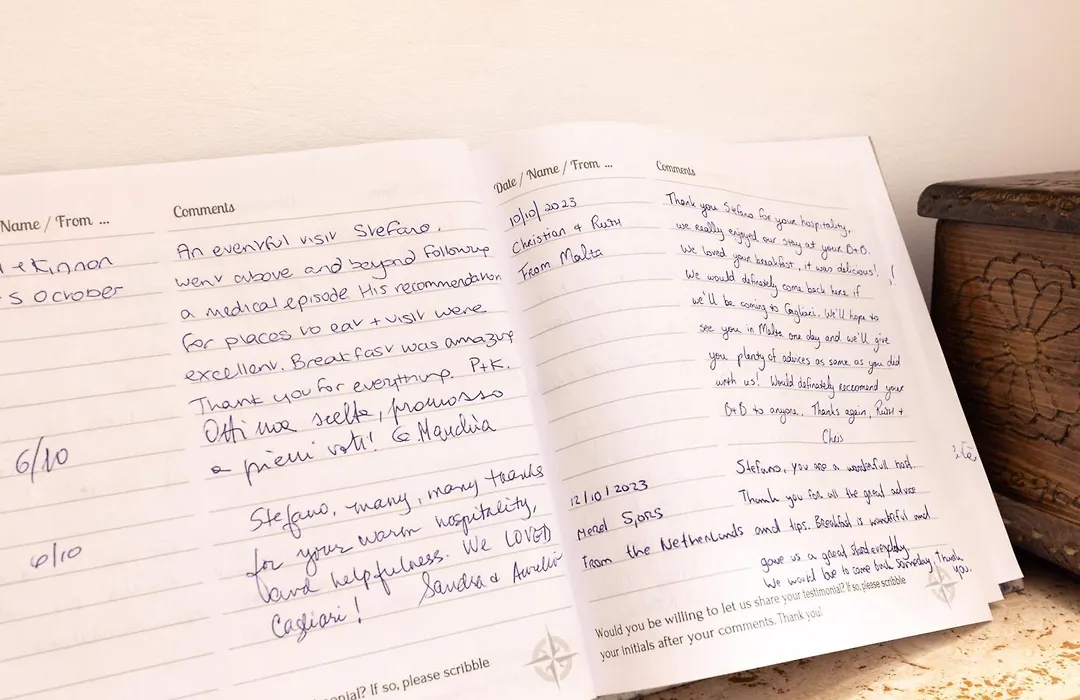 Name / From ...
Comments
Kinnon
5 October
An eventful visit Stefano.
went above and beyond following
a medical episode. His recommendation
for places to eat + visit were
excellent. Breakfast was amazing
Thank you for everything. P+K.
6/10
Ottima scelta, promosso
a pieni voti!
6/10
Stefano, many, many thanks
for your warm hospitality,
and helpfulness. We LOVED
Cagliari! Sandra &
If so, please scribble
Date / Name / From ...
Comments
10/10/2023
Christian + Ruth
From Malta
Thank you Stefano for your hospitality,
we really enjoyed our stay at your B+B.
We loved your breakfast, it was delicious!
We would definately come back here if
we'll be coming to Cagliari. We'll hope to
see you in Malta one day and we'll give
you plenty of advices as same as you did
with us! Would definately reccomend your
B+B to anyone. Thanks again, Ruth +
Chris
12/10/2023
Merel Sjors
From the Netherlands
Stefano, you are a wonderfull host.
Thank you for all the great advice
and tips. Breakfast is wonderful and
gave us a great start everyday.
We would love to come back someday, Thank
you.
Would you be willing to let us share your testimonial? If so, please scribble
your initials after your comments. Thank you!